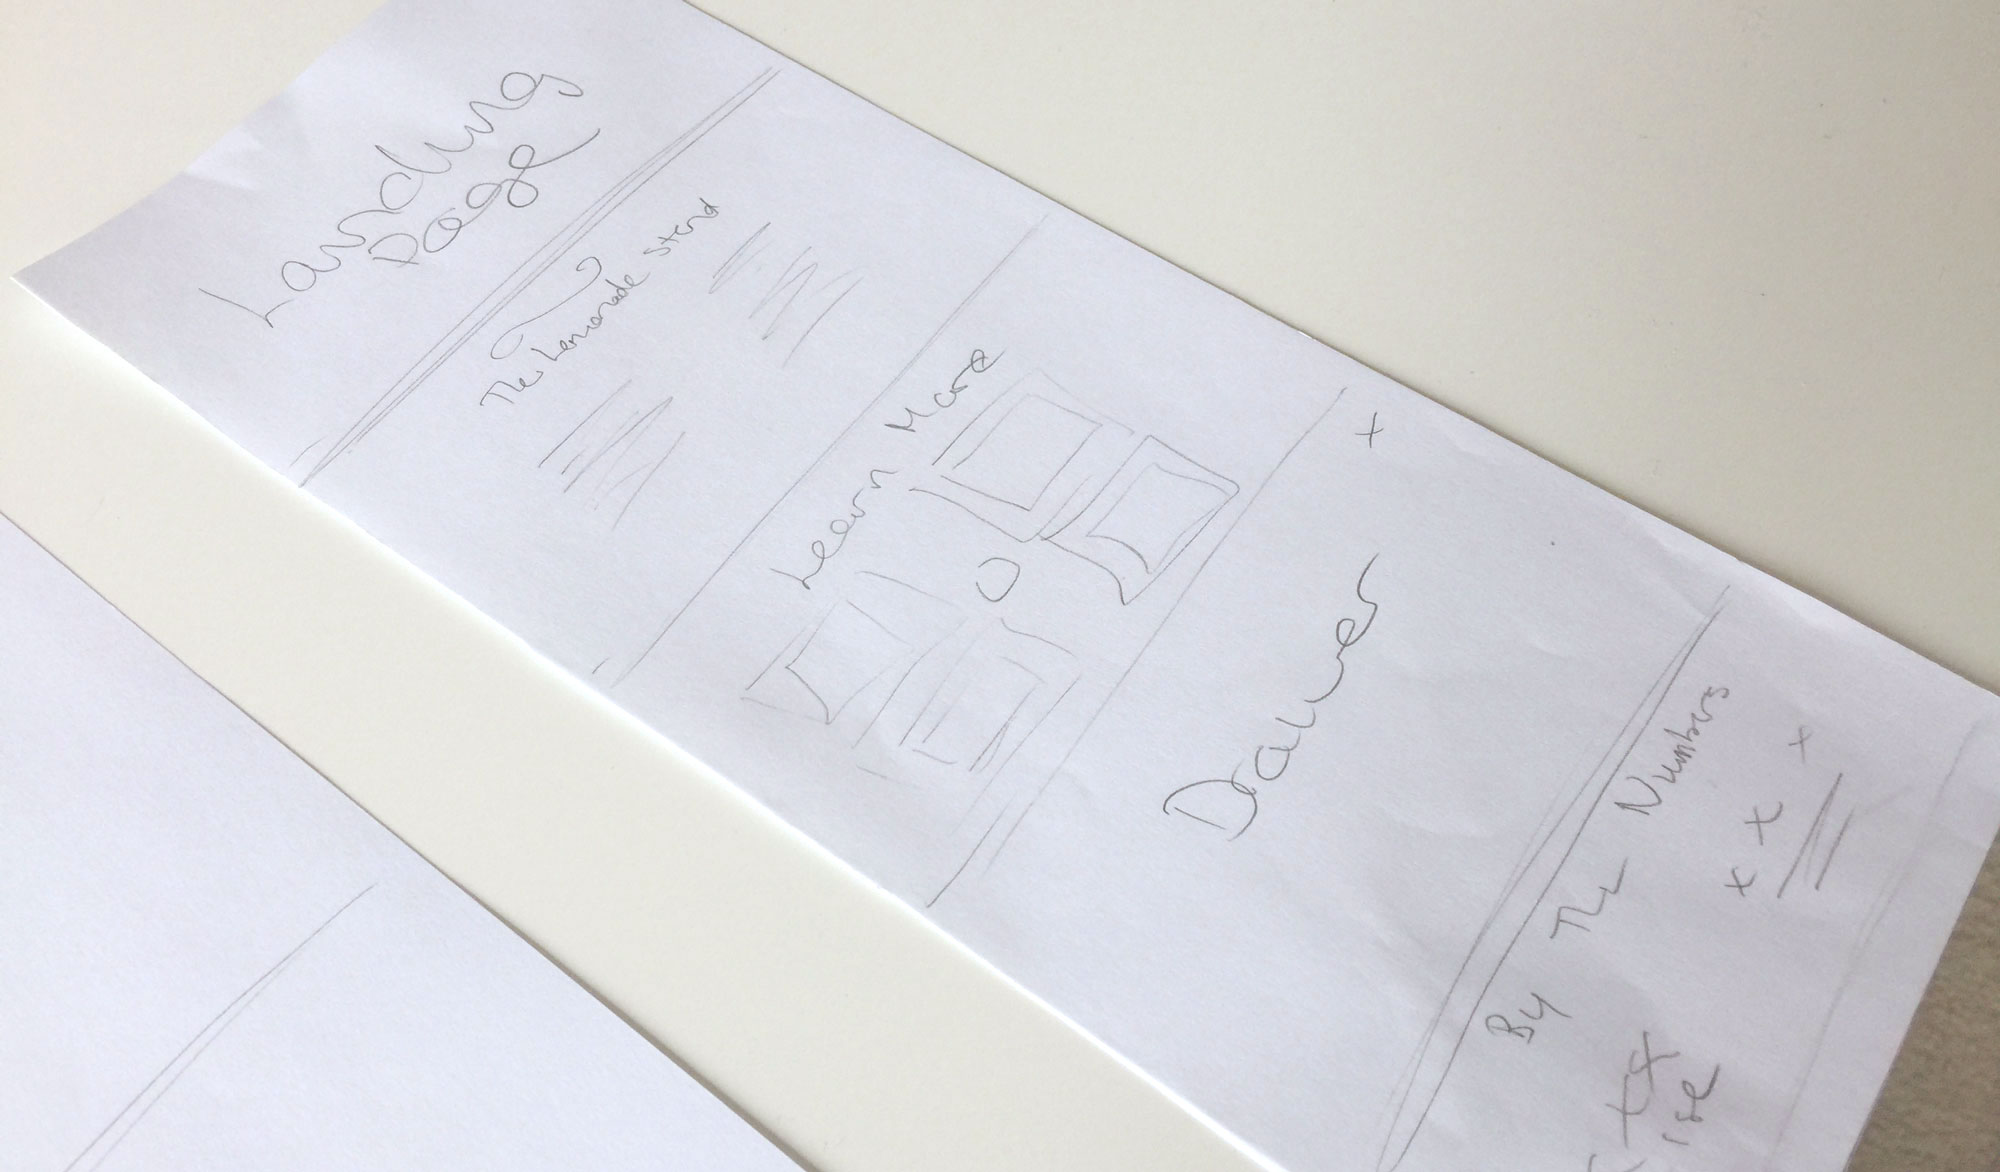 Landing
Page
The Lemonade Stand
Learn More
x
Drawer
By The Numbers
x x x
xx